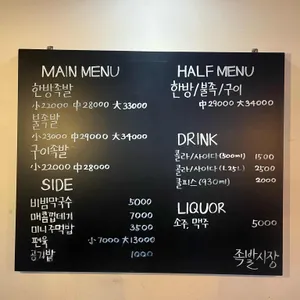 MAIN MENU
한방족발
小22000 中28000 大33000
불족발
小23000 中29000 大34000
구이족발
小22000 中28000
SIDE
비빔막국수 5000
매콤껍데기 7000
미니주먹밥 3500
편육 小7000 大13000
공기밥 1000
HALF MENU
한방/불족/구이
中29000 大34000
DRINK
콜라/사이다(300ml) 1500
콜라/사이다(1.25L) 2500
쿨피스(930ml) 2000
LIQUOR
소주, 맥주 5000
족발시장